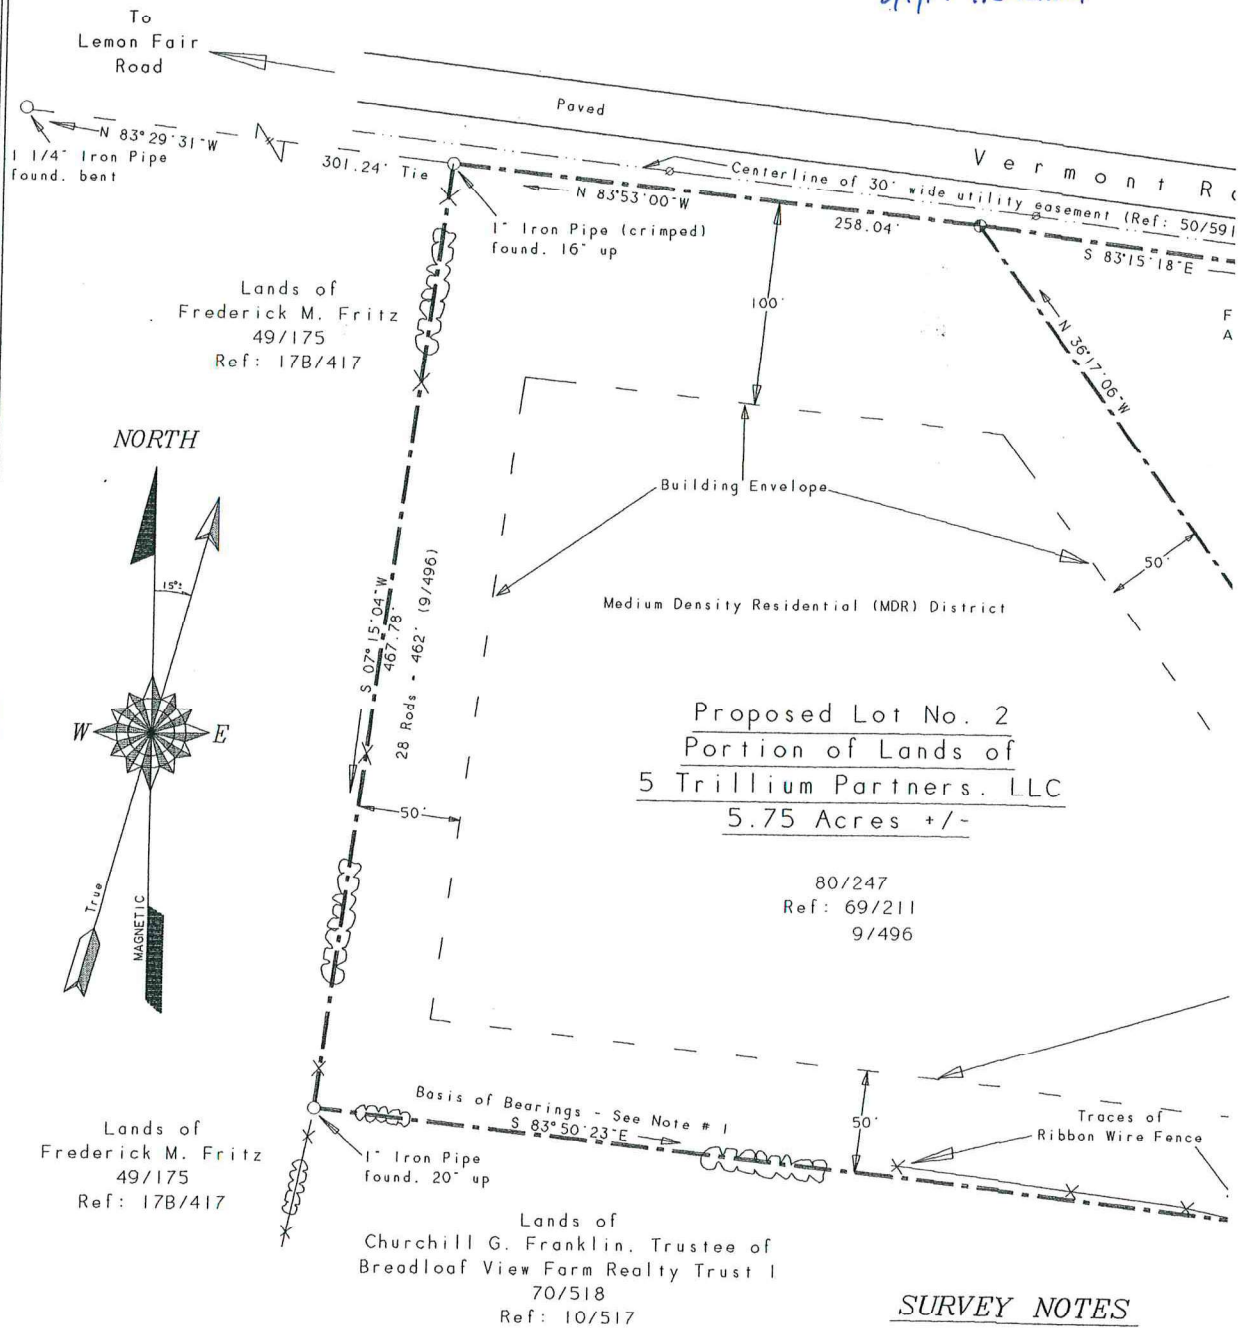 To
Lemon Fair
Road
Paved
N 83°29'31"W
1 1/4" Iron Pipe
found, bent
301.24' Tie
Vermont
Centerline of 30' wide utility easement (Ref: 50/591
N 83°53'00"W
258.04'
S 83°15'18"E
1" Iron Pipe (crimped)
found, 16" up
Lands of
Frederick M. Fritz
49/175
Ref: 17B/417
100'
F
A
N 36°17'06"W
NORTH
15°±
W
E
True
MAGNETIC
Building Envelope
50'
Medium Density Residential (MDR) District
S 07°15'04"W
467.78'
28 Rods - 462' (9/496)
Proposed Lot No. 2
Portion of Lands of
5 Trillium Partners, LLC
5.75 Acres +/-
50'
80/247
Ref: 69/211
9/496
Basis of Bearings - See Note # 1
S 83°50'23"E
50'
Traces of
Ribbon Wire Fence
Lands of
Frederick M. Fritz
49/175
Ref: 17B/417
1" Iron Pipe
found, 20" up
Lands of
Churchill G. Franklin, Trustee of
Breadloaf View Farm Realty Trust I
70/518
Ref: 10/517
SURVEY NOTES